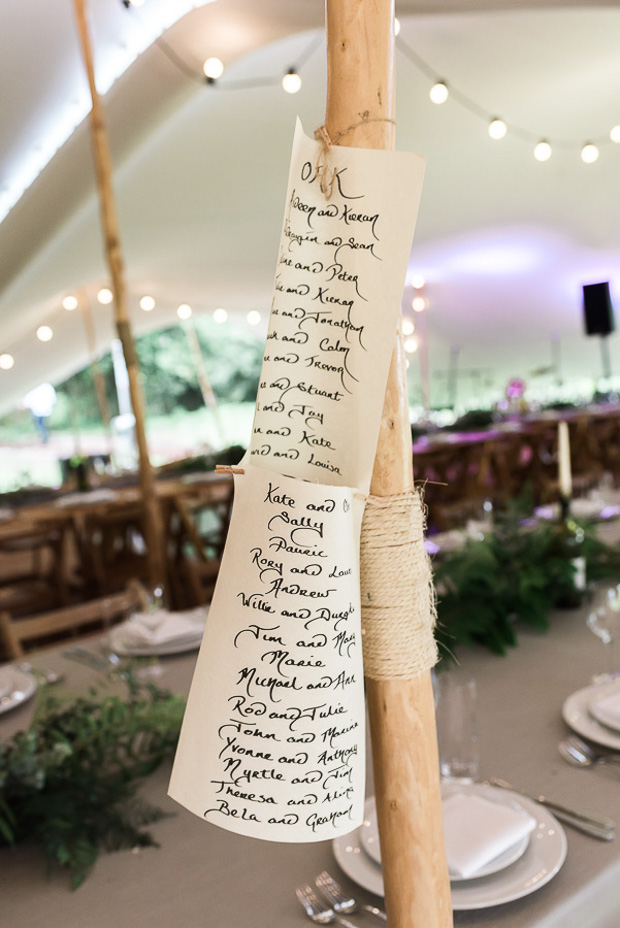 OAK
and Kieran
and Sean
and Peter
and Kieran
and Jonathan
and Calm
and Trevor
and Stuart
and Jay
and Kate
and Louisa
Kate and
Sally
Pauric
Rory and
Andrew
Willie and
Tim and Mary
Marie
Michael and Ann
Rod and Julie
John and
Yvonne and Anthony
Myrtle and Tim
Theresa and
Bela and Graham